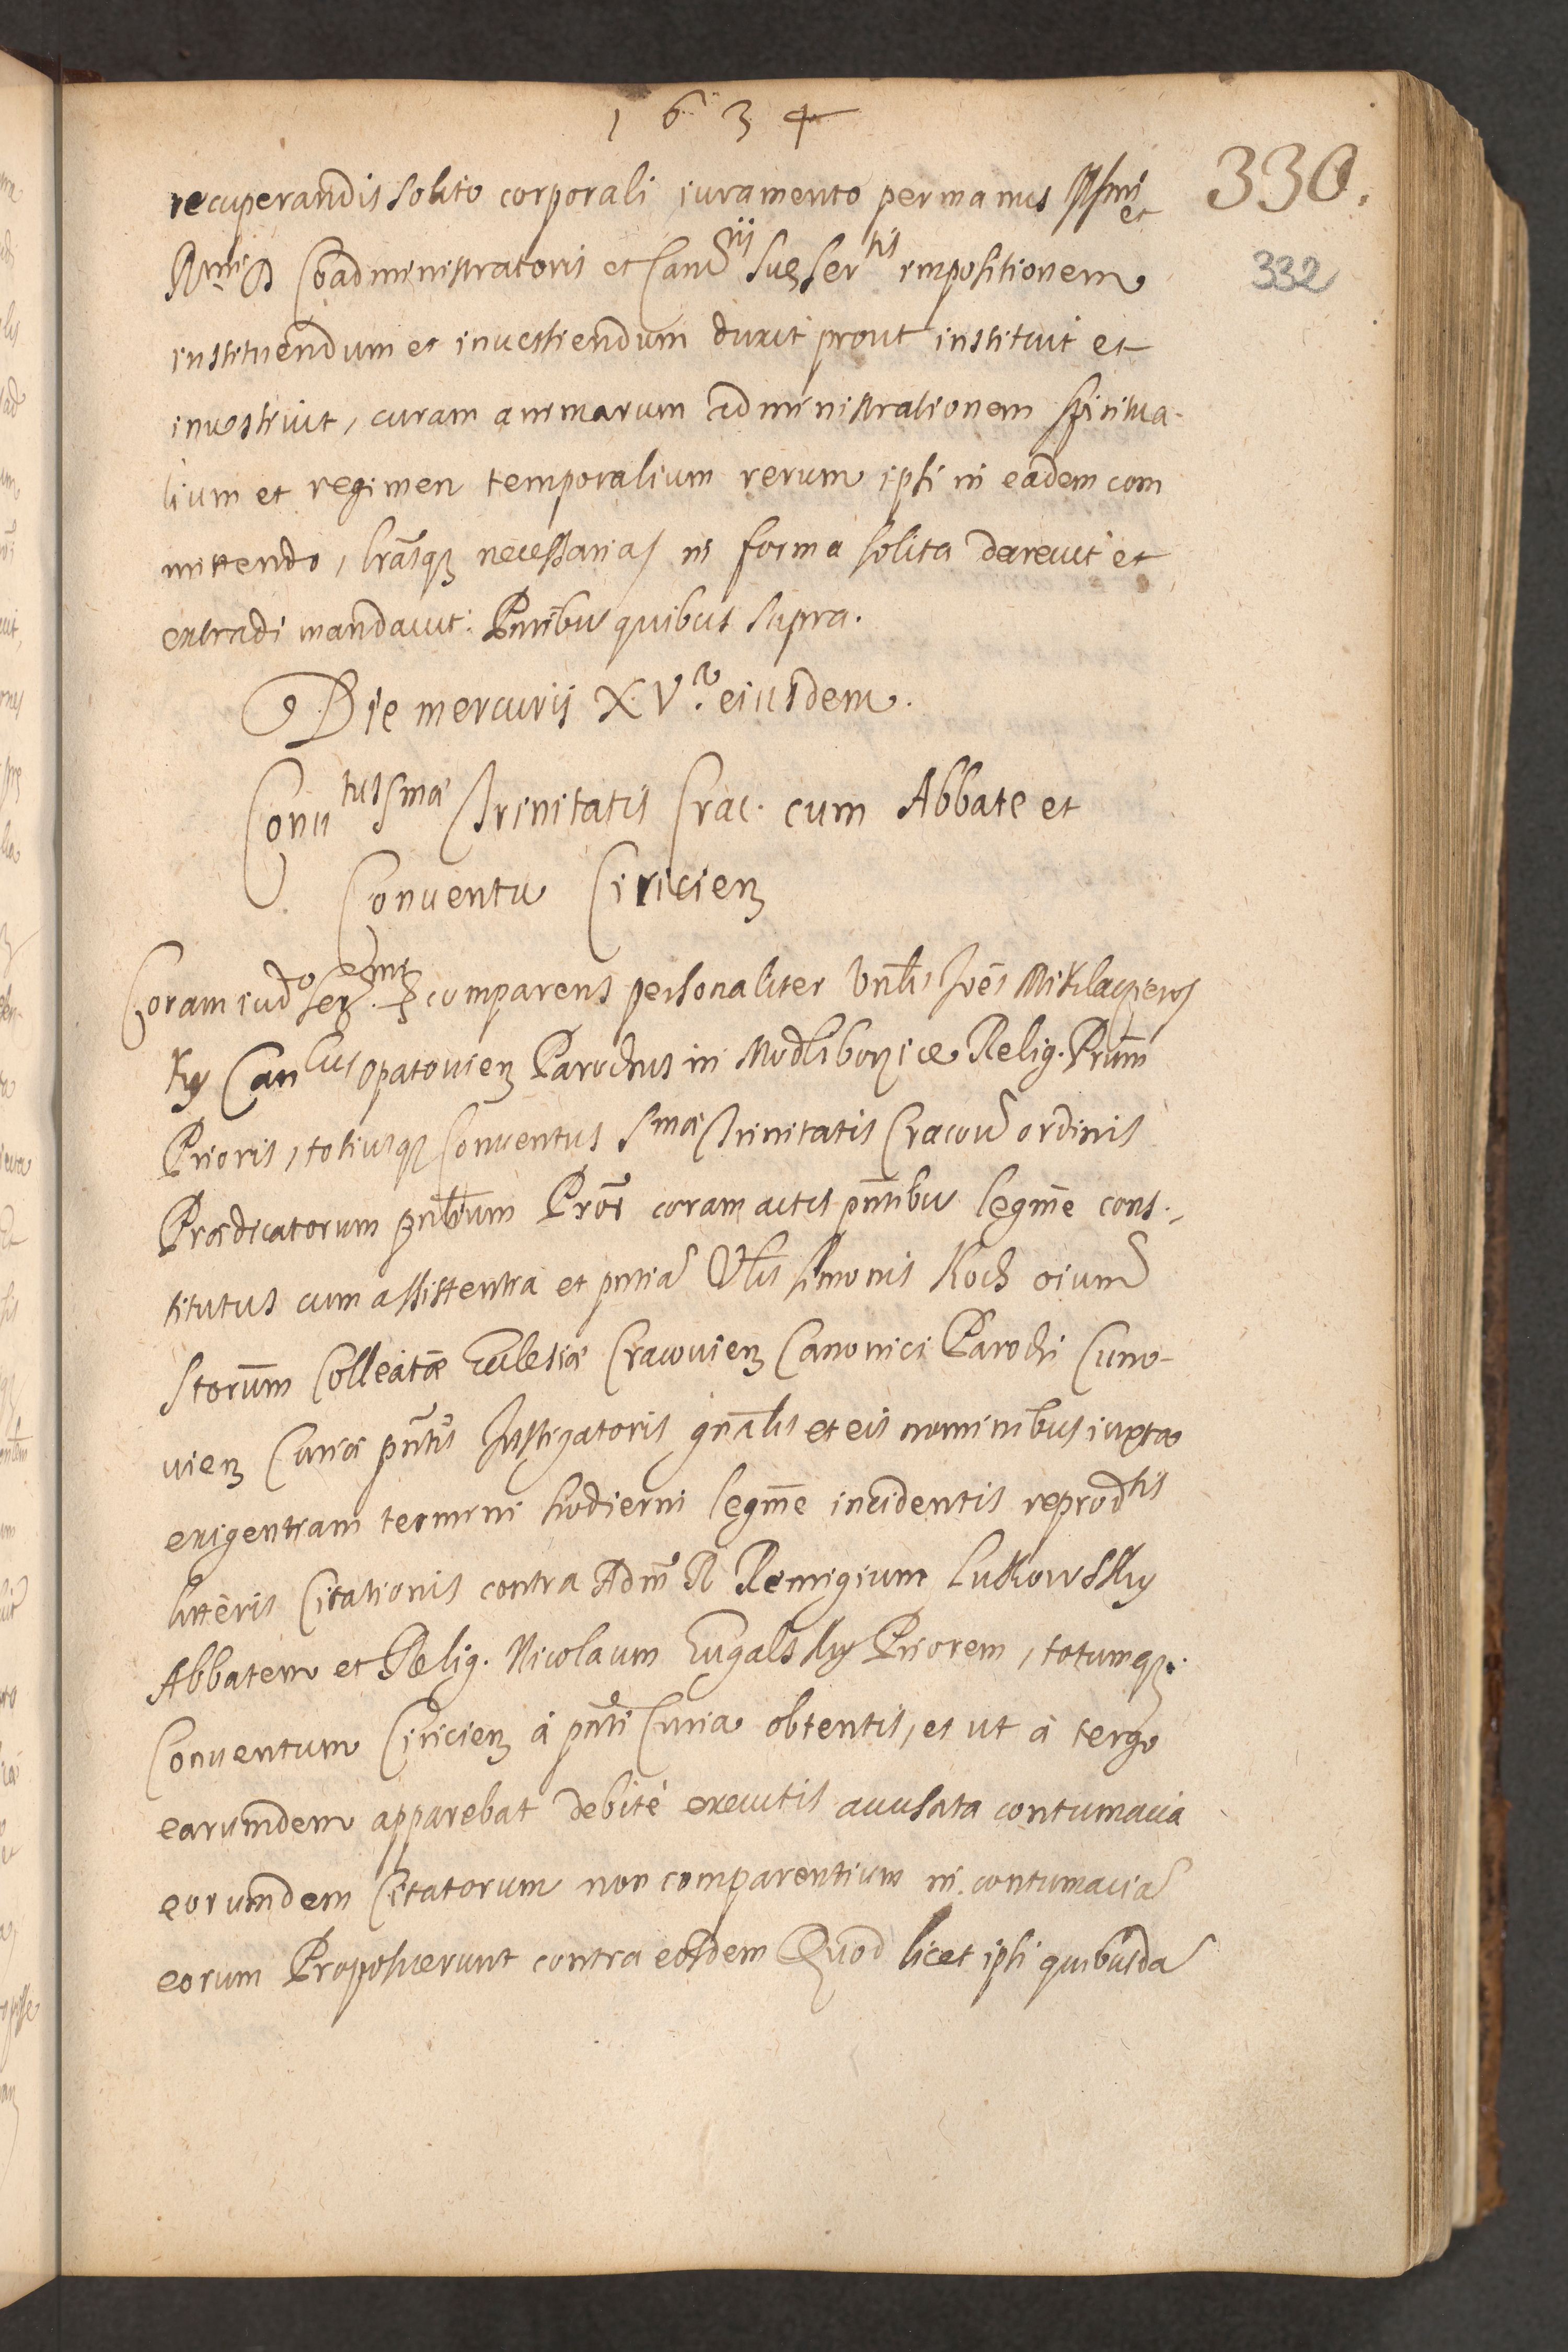 1634
330.
332
recuperandis solito corporali iuramento per manus Illsmi et
Rmi D Coadministratoris et Canrii suę Sertis impositionem
instituendum et inuestiendum duxit prout instituit et
inuestiuit, curam animarum administrationem spiritua-
lium et regimen temporalium rerum ipsi in eadem com
mittendo, lrasq3 necessarias in forma solita decreuit et
extradi mandauit: Pntibus quibus supra.
Die mercurii XV.a eiusdem.
Conutus Smæ Trinitatis Crac. cum Abbate et
Conuentu Ciricien
Coram iudo Sere comparens personaliter Vnlis Ioes Miklaszews
ky Canlus Opatouien Parochus in Modliborzice Relig. Prum
Prioris, totiusq3 Conuentus Smæ Trinitatis Cracou ordinis
Prædicatorum pntium Pror coram actis pntibus legme cons-
titutus cum assistentia et pntia Vlis Simonis Koch oium
Storum Colleatæ Ecclesiæ Cracouien Canonici Parochi Cuno-
uien Curiæ pntis Instigatoris gnalis et eis nominibus iuxta
exigentiam termini hodierni legme incidentis reprodtis
litteris Citationis contra Adm R Remigium Lukowsky
Abbatem et Relig. Nicolaum Zugalsky Priorem, totumq3
Conuentum Ciricien à pnti Curia obtentis, et ut à tergo
earumdem apparebat debitè executis accusata contumacia
eorumdem Citatorum non comparentium in contumacia
eorum Proposuerunt contra eosdem Quod licet ipsi quibusda